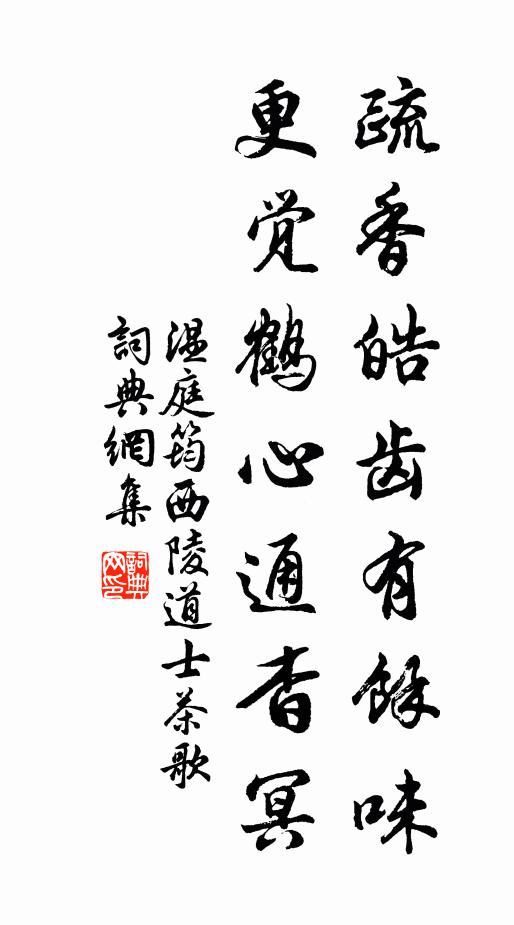 疏香皓齿有餘味
更觉鶴心通杳冥
温庭筠西陵道士茶歌
詞典網集
詞典网印